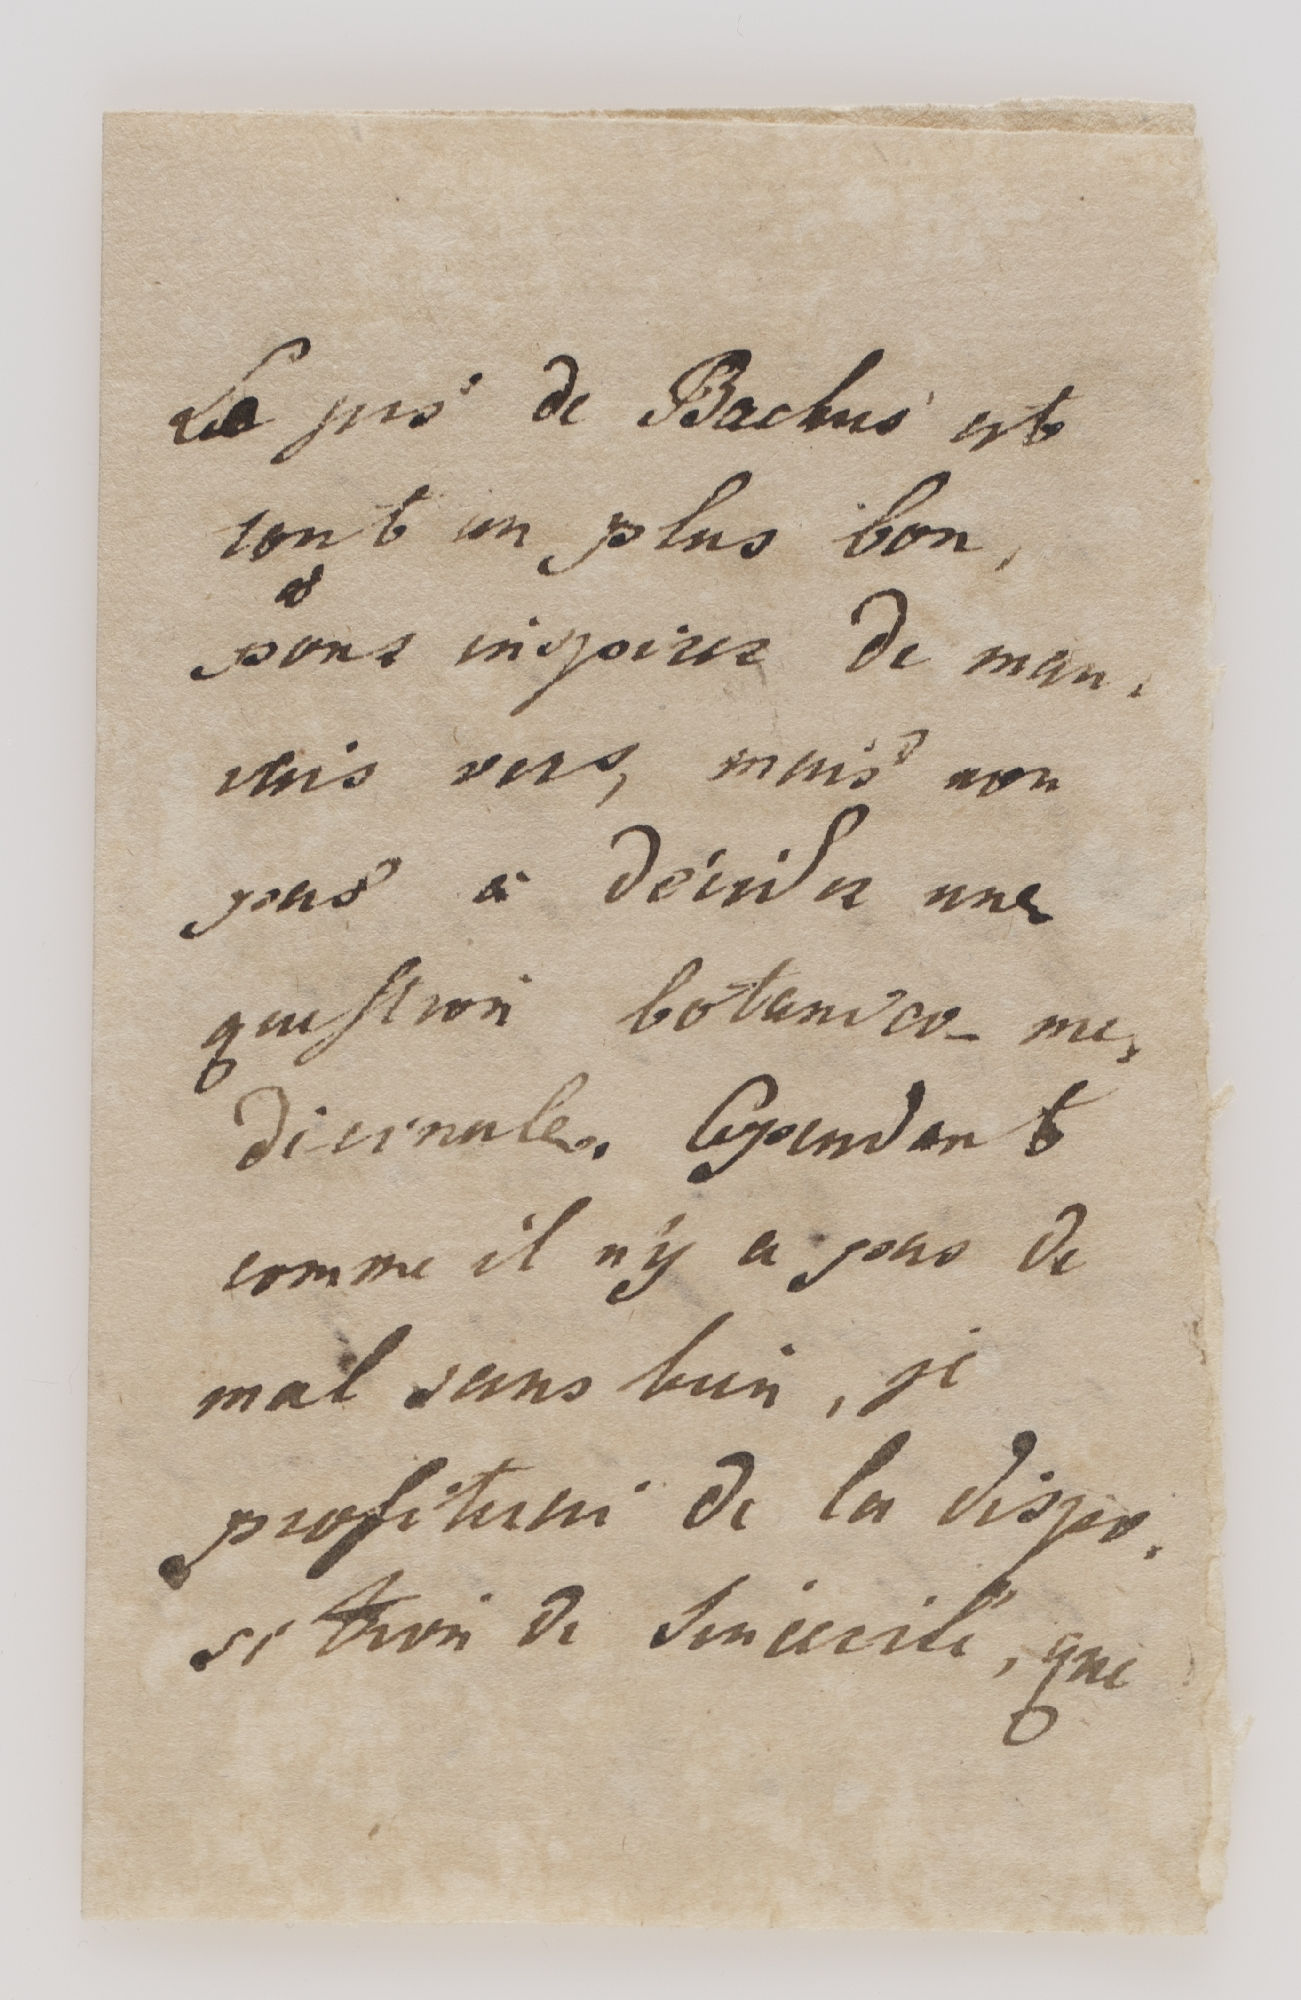 Le jus de Bachus est
tout au plus bon,
pour inspirer de mau-
vais vers, mais non
pas a décider une
question botanico-me-
dicinale. Cependant
comme il n'y a pas de
mal sans bien, je
profiterai de la dispo-
sition de Sincerité, que